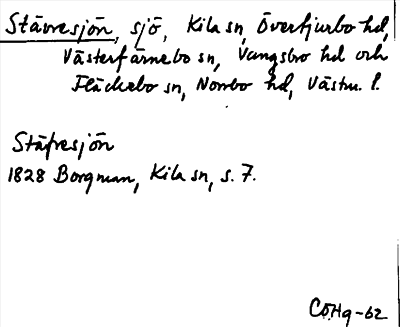 Stävresjön, sjö, Kila sn, Övertjurbo hd,
Västerfärnebo sn, Vangsbro hd och
Fläckebo sn, Norrbo hd, Västm. l.
Stäfresjön
1828 Borgman, Kila sn, s. 7.
CÖHg-62